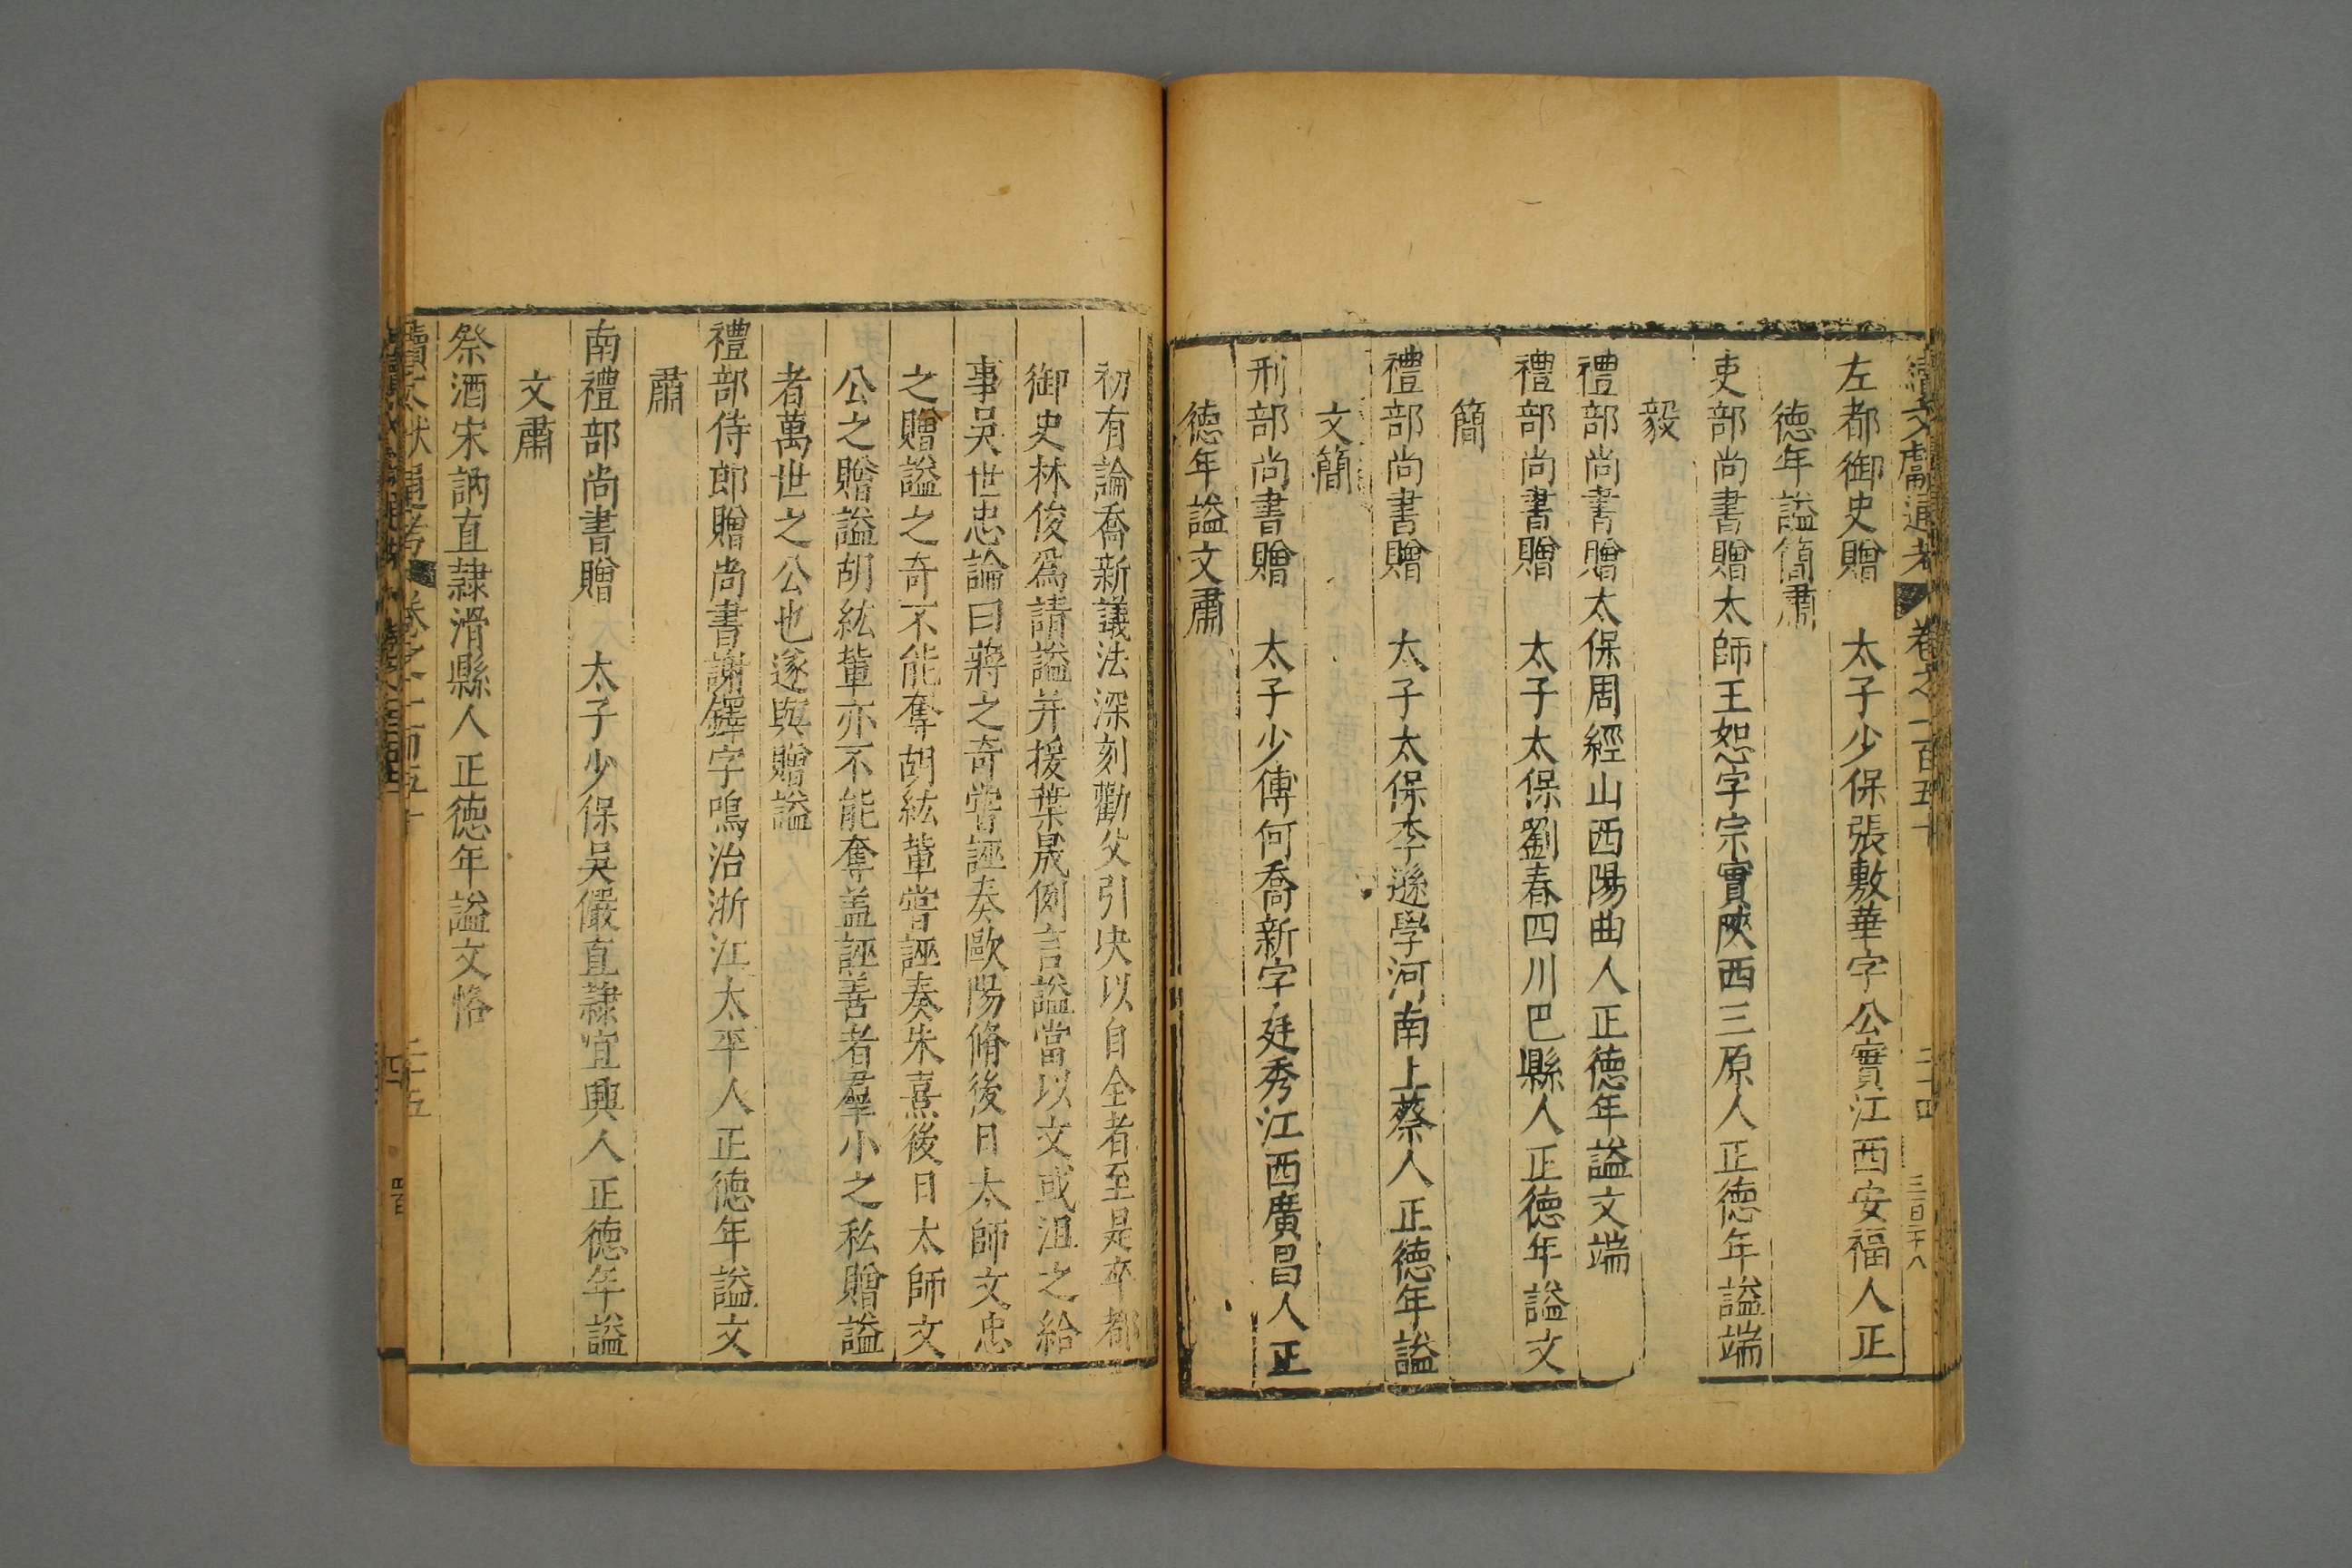 續文獻通考 卷之一百五十 二十四 三百二十八
左都御史贈 太子少保張敷華字公實江西安福人正
德年謚簡肅
吏部尚書贈太師王恕字宗實陝西三原人正德年謚端
毅
禮部尚書贈太保周經山西陽曲人正德年謚文端
禮部尚書贈 太子太保劉春四川巴縣人正德年謚文
簡
禮部尚書贈 太子太保李遜學河南上蔡人正德年謚
文簡
刑部尚書贈 太子少傅何喬新字廷秀江西廣昌人正
德年謚文肅
初有論喬新議法深刻勸父引决以自全者至是卒都
御史林俊爲請謚并援葉晟例言謚當以文或沮之給
事吳世忠論曰蔣之奇嘗誣奏歐陽脩後日太師文忠
之贈謚之奇不能奪胡紘軰嘗誣奏朱熹後日太師文
公之贈謚胡紘軰亦不能奪盖誣善者羣小之私贈謚
者萬世之公也遂與贈謚
禮部侍郎贈尚書謝鐸字鳴治浙江太平人正德年謚文
肅
南禮部尚書贈 太子少保吳儼直隷宜興人正德年謚
文肅
祭酒宋訥直隷滑縣人正德年謚文恪
續文獻通考 卷之一百五十 二十五